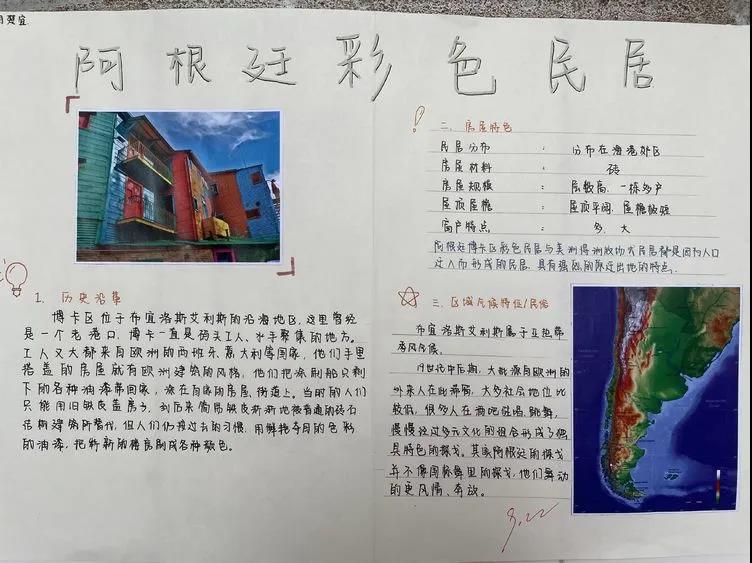 阿根廷彩色民居
1、历史沿革
博卡区位于布宜洛斯艾利斯的沿海地区,这里曾经
是一个老港口,博卡一直是码头工人、水手聚集的地方。
工人又大都来自欧洲的西班牙、意大利等国家,他们手里
搭盖的房屋就有欧洲建筑的风格,他们把涂刷船只剩
下的各种油漆带回家,涂在自家的房屋、街道上。当时的人们
只能用旧铁皮盖房子,到后来简陋铁皮渐渐地被普通的砖石
结构建筑所替代,但人们仍按过去的习惯,用鲜艳夺目的色彩
的油漆,把新新的楼房刷成各种颜色。
二、房屋特色
民居分布：分布在海港外区
房屋材料：砖
房屋规模：层较高,一栋多户
屋顶屋檐：屋顶平阔,屋檐
窗户特点：多、大
阿根廷博卡区彩色民居与美洲得洲牧场式民居都是因为人口
迁入而形成的民居,具有强烈的原迁出地的特点。
三、区域民俗特征/民俗
布宜洛斯艾利斯属于亚热带
季风气候。
19世纪中后期,大批源自欧洲的
外来人在此滞留,大多社会地位比
较低,很多人在酒吧唱唱跳舞,
慢慢经过多元文化的组合形成了独
具特色的探戈。其实阿根廷的探戈
并不像国标舞里的探戈,他们舞动
的更风情、奔放。
9.22